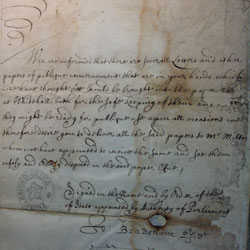 We are informed that there are severall Letters and other
papers of publique concernment that are in your hands which
we have thought fitt should be brought into the paper
at Whitehall both for the safe keeping of them and
they might be ready for publique use upon all occasions
therefore desire you to deliver all the said papers to Mr. Milton
whom we have appointed to receive the same and see them
safely and disposed in the said paper office;
Signed in the Name and by Order of the
of State appointed by Authority of Parliament
Jo Bradshawe